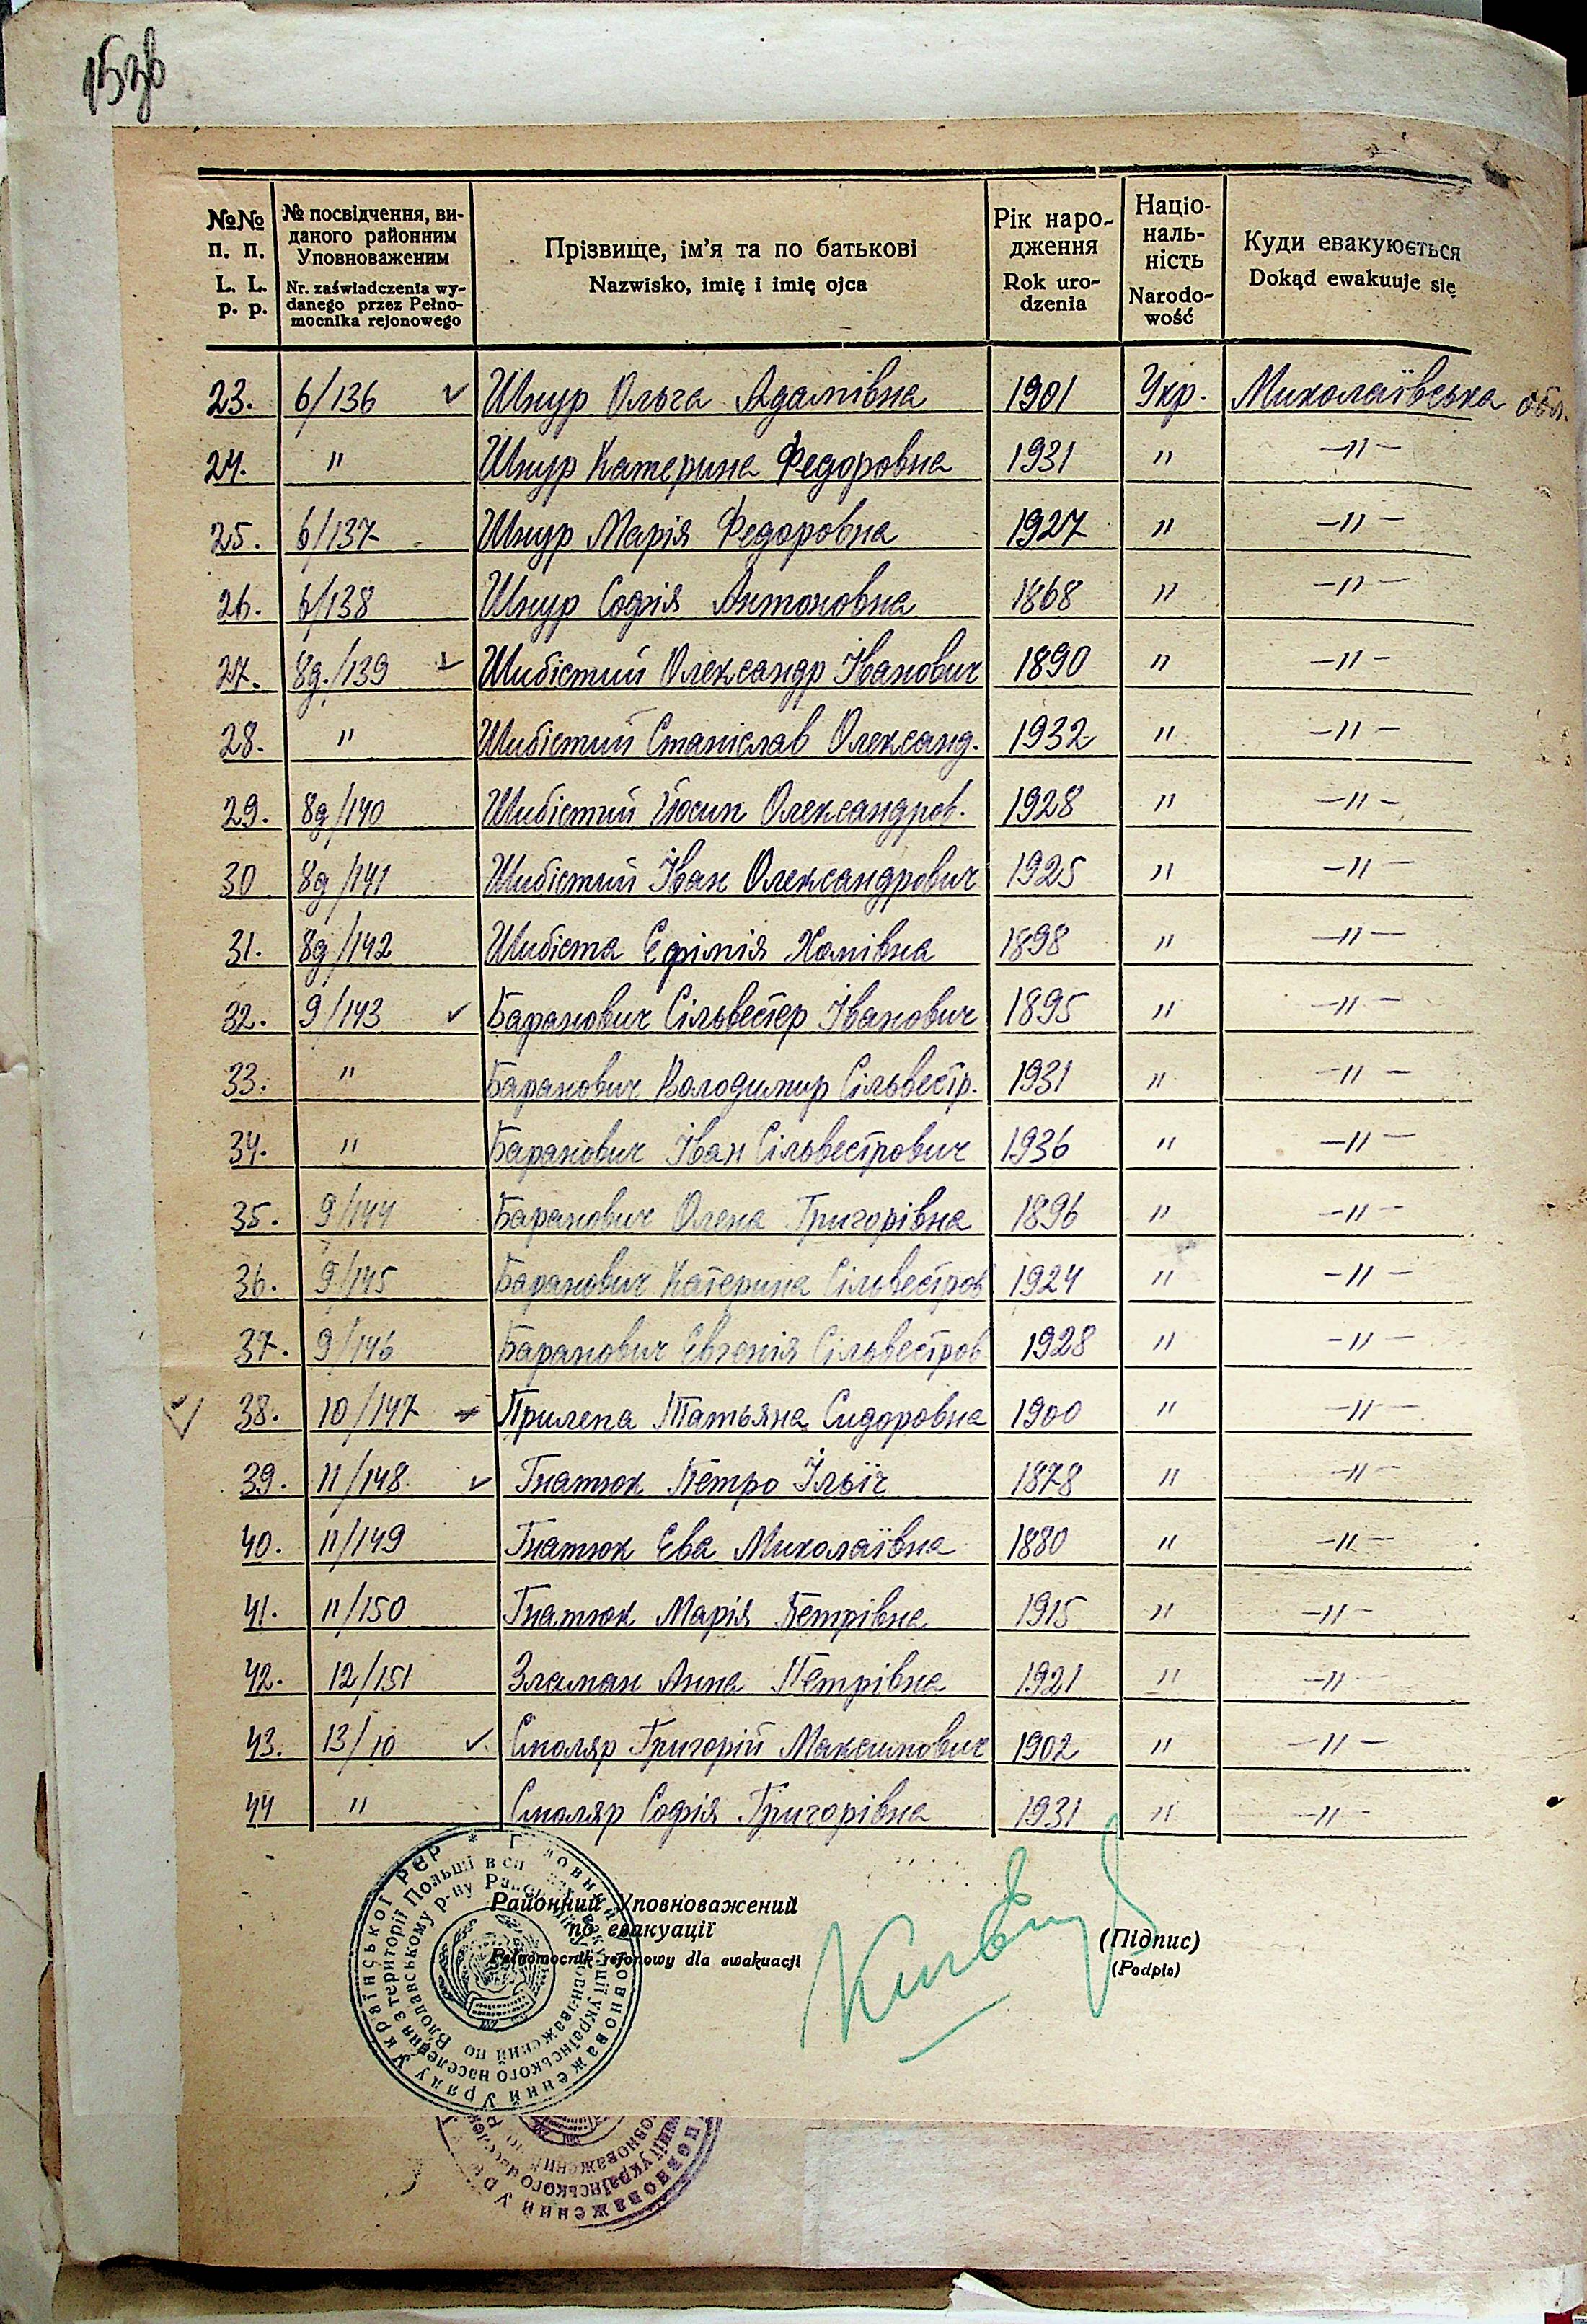 153б
№№ п. п. L. L. p. p.
№ посвідчення, виданого районним Уповноваженим
Nr. zaświadczenia wydanego przez Pełnomocnika rejonowego
Прізвище, ім'я та по батькові
Nazwisko, imię i imię ojca
Рік народження
Rok urodzenia
Національність
Narodowość
Куди евакуюється
Dokąd ewakuuje się
23. 6/136 ✓ Шнур Ольга Адамівна 1901 Укр. Миколаївська обл.
24. " Шнур Катерина Федоровна 1931 " —"—
25. 6/137 Шнур Марія Федоровна 1927 " —"—
26. 6/138 Шнур Софія Антоновна 1868 " —"—
27. 8д./139 ✓ Шибістий Олександр Іванович 1890 " —"—
28. " Шибістий Станіслав Олександ. 1932 " —"—
29. 8д/140 Шибістий Йосип Олександров. 1928 " —"—
30 8д/141 Шибістий Іван Олександрович 1925 " —"—
31. 8д/142 Шибіста Єфімія 1898 " —"—
32. 9/143 ✓ Баранович Сільвестер Іванович 1895 " —"—
33. " Баранович Володимир Сільвестр. 1931 " —"—
34. " Баранович Іван Сільвестрович 1936 " —"—
35. 9/144 Баранович Олена Григорівна 1896 " —"—
36. 9/145 Баранович Катерина Сільвестров 1924 " —"—
37. 9/146 Баранович Євгенія Сільвестров 1928 " —"—
✓ 38. 10/147 Прилепа Татьяна Сидоровна 1900 " —"—
39. 11/148. ✓ Гнатюк Петро Ільїч 1878 " —"—
40. 11/149 Гнатюк Ева Миколаївна 1880 " —"—
41. 11/150 Гнатюк Марія Петрівна 1915 " —"—
42. 12/151 Зламан Анна Петрівна 1921 " —"—
43. 13/10 ✓ Смоляр Григорій Максимович 1902 " —"—
44 " Смоляр Софія Григорівна 1931 " —"—
Районний Уповноважений
по евакуації
Pełnomocnik rejonowy dla ewakuacji
(Підпис)
(Podpis)